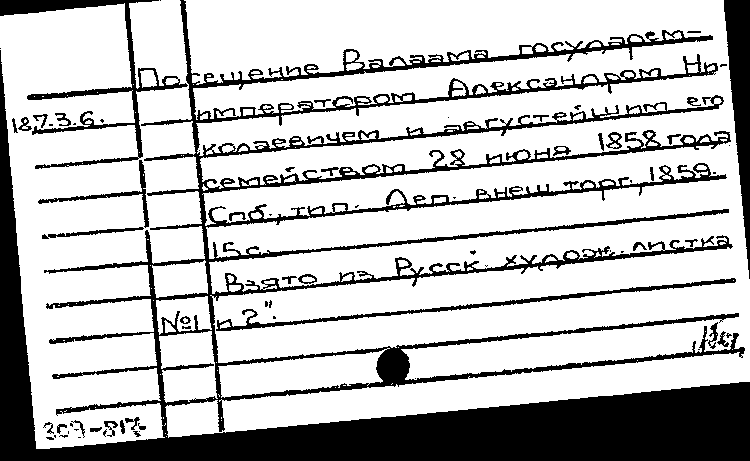 Посещение Валаама государем-
18.7.3.6. императором Александром Ни-
колаевичем и августейшим его
семейством 28 июня 1858 года
Спб., тип. Деп. внеш. торг., 1859.
15 с.
„Взято из Русск. худож. листка
№1 и 2".
309-817